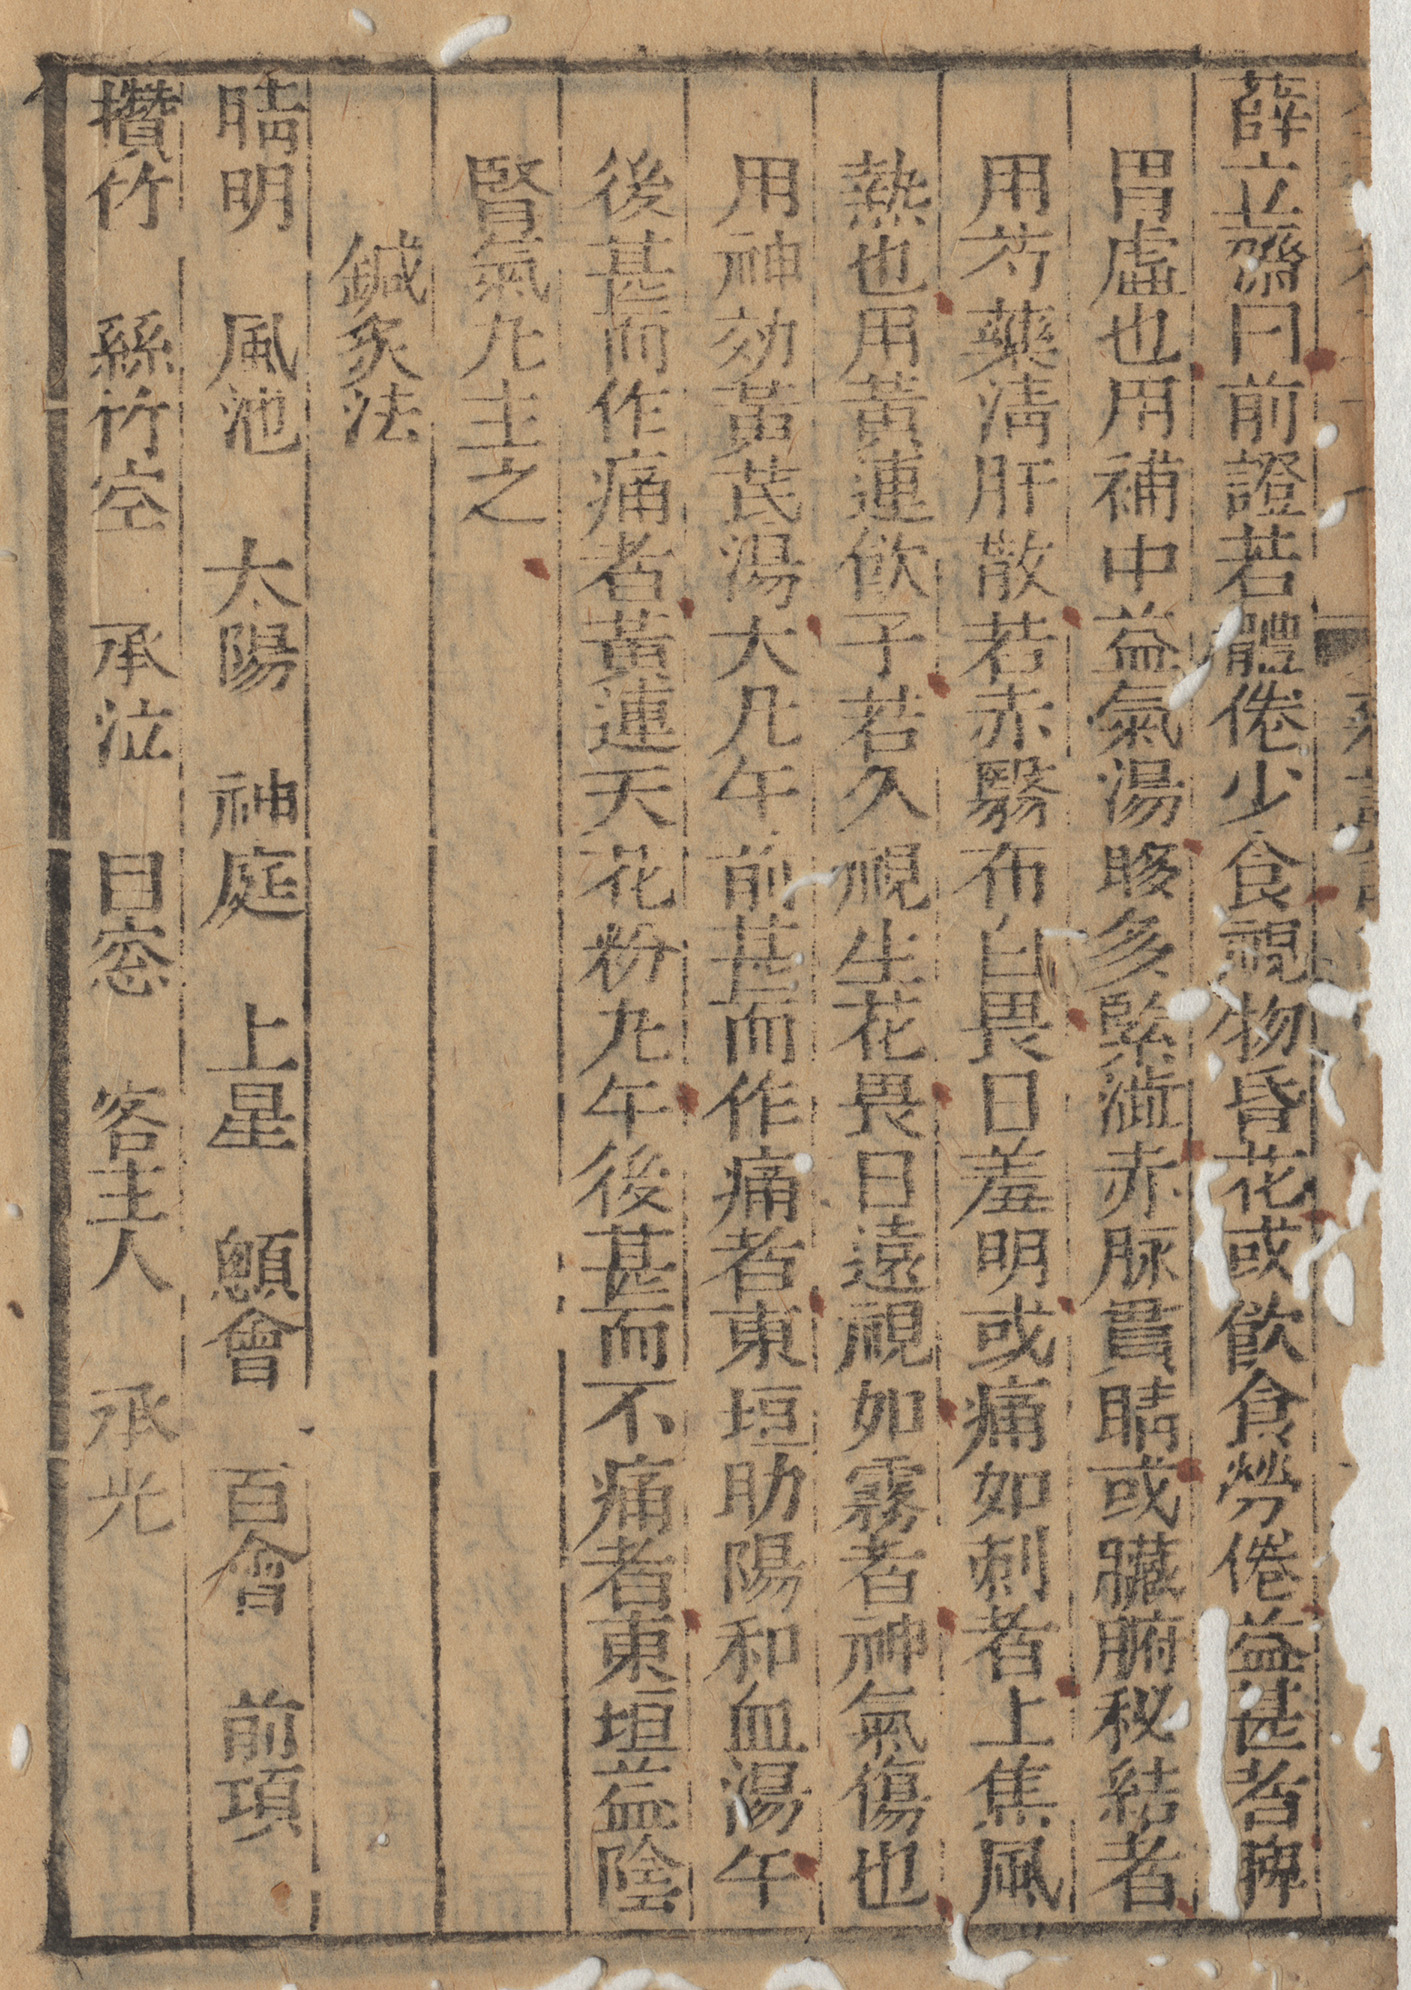 薛立齋曰前證若體倦少食視物昏花或飲食勞倦益甚者脾
胃虛也用補中益氣湯眵多緊澁赤脉貫睛或臟腑秘結者
用芍藥淸肝散若赤翳布白畏日羞明或痛如刺者上焦風
熱也用黃連飲子若久視生花畏日遠視如霧者神氣傷也
用神効黃芪湯大凡午前甚而作痛者東垣助陽和血湯午
後甚而作痛者黃連天花粉丸午後甚而不痛者東垣益陰
腎氣丸主之
鍼灸法
睛明　風池　太陽　神庭　上星　顖會　百會　前項
攢竹　絲竹空　承泣　目窓　客主人　承光